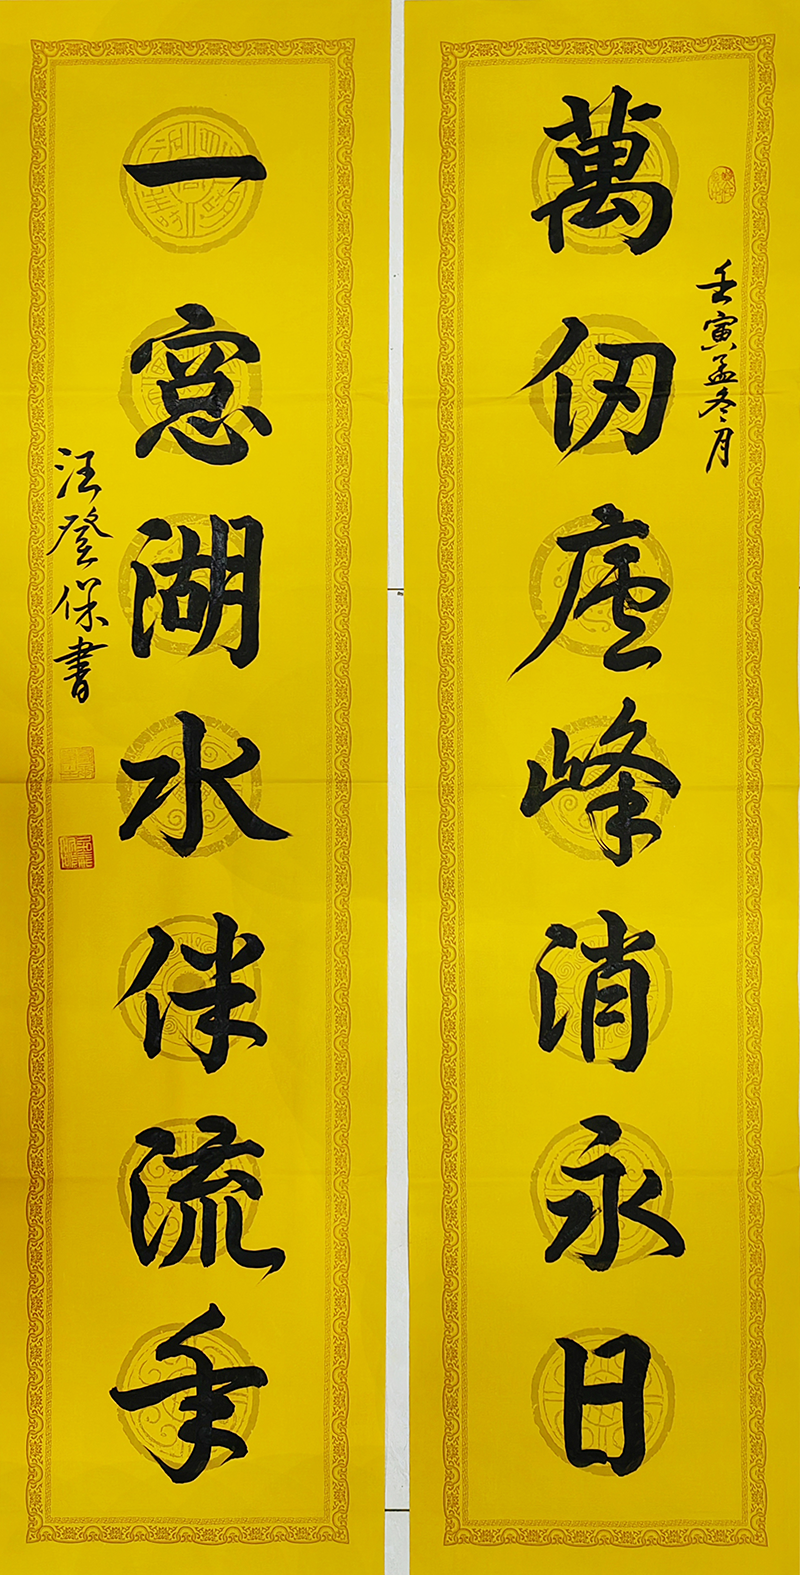 壬寅孟冬月
萬仞庐峰消永日
一窓湖水伴流年
汪登保書